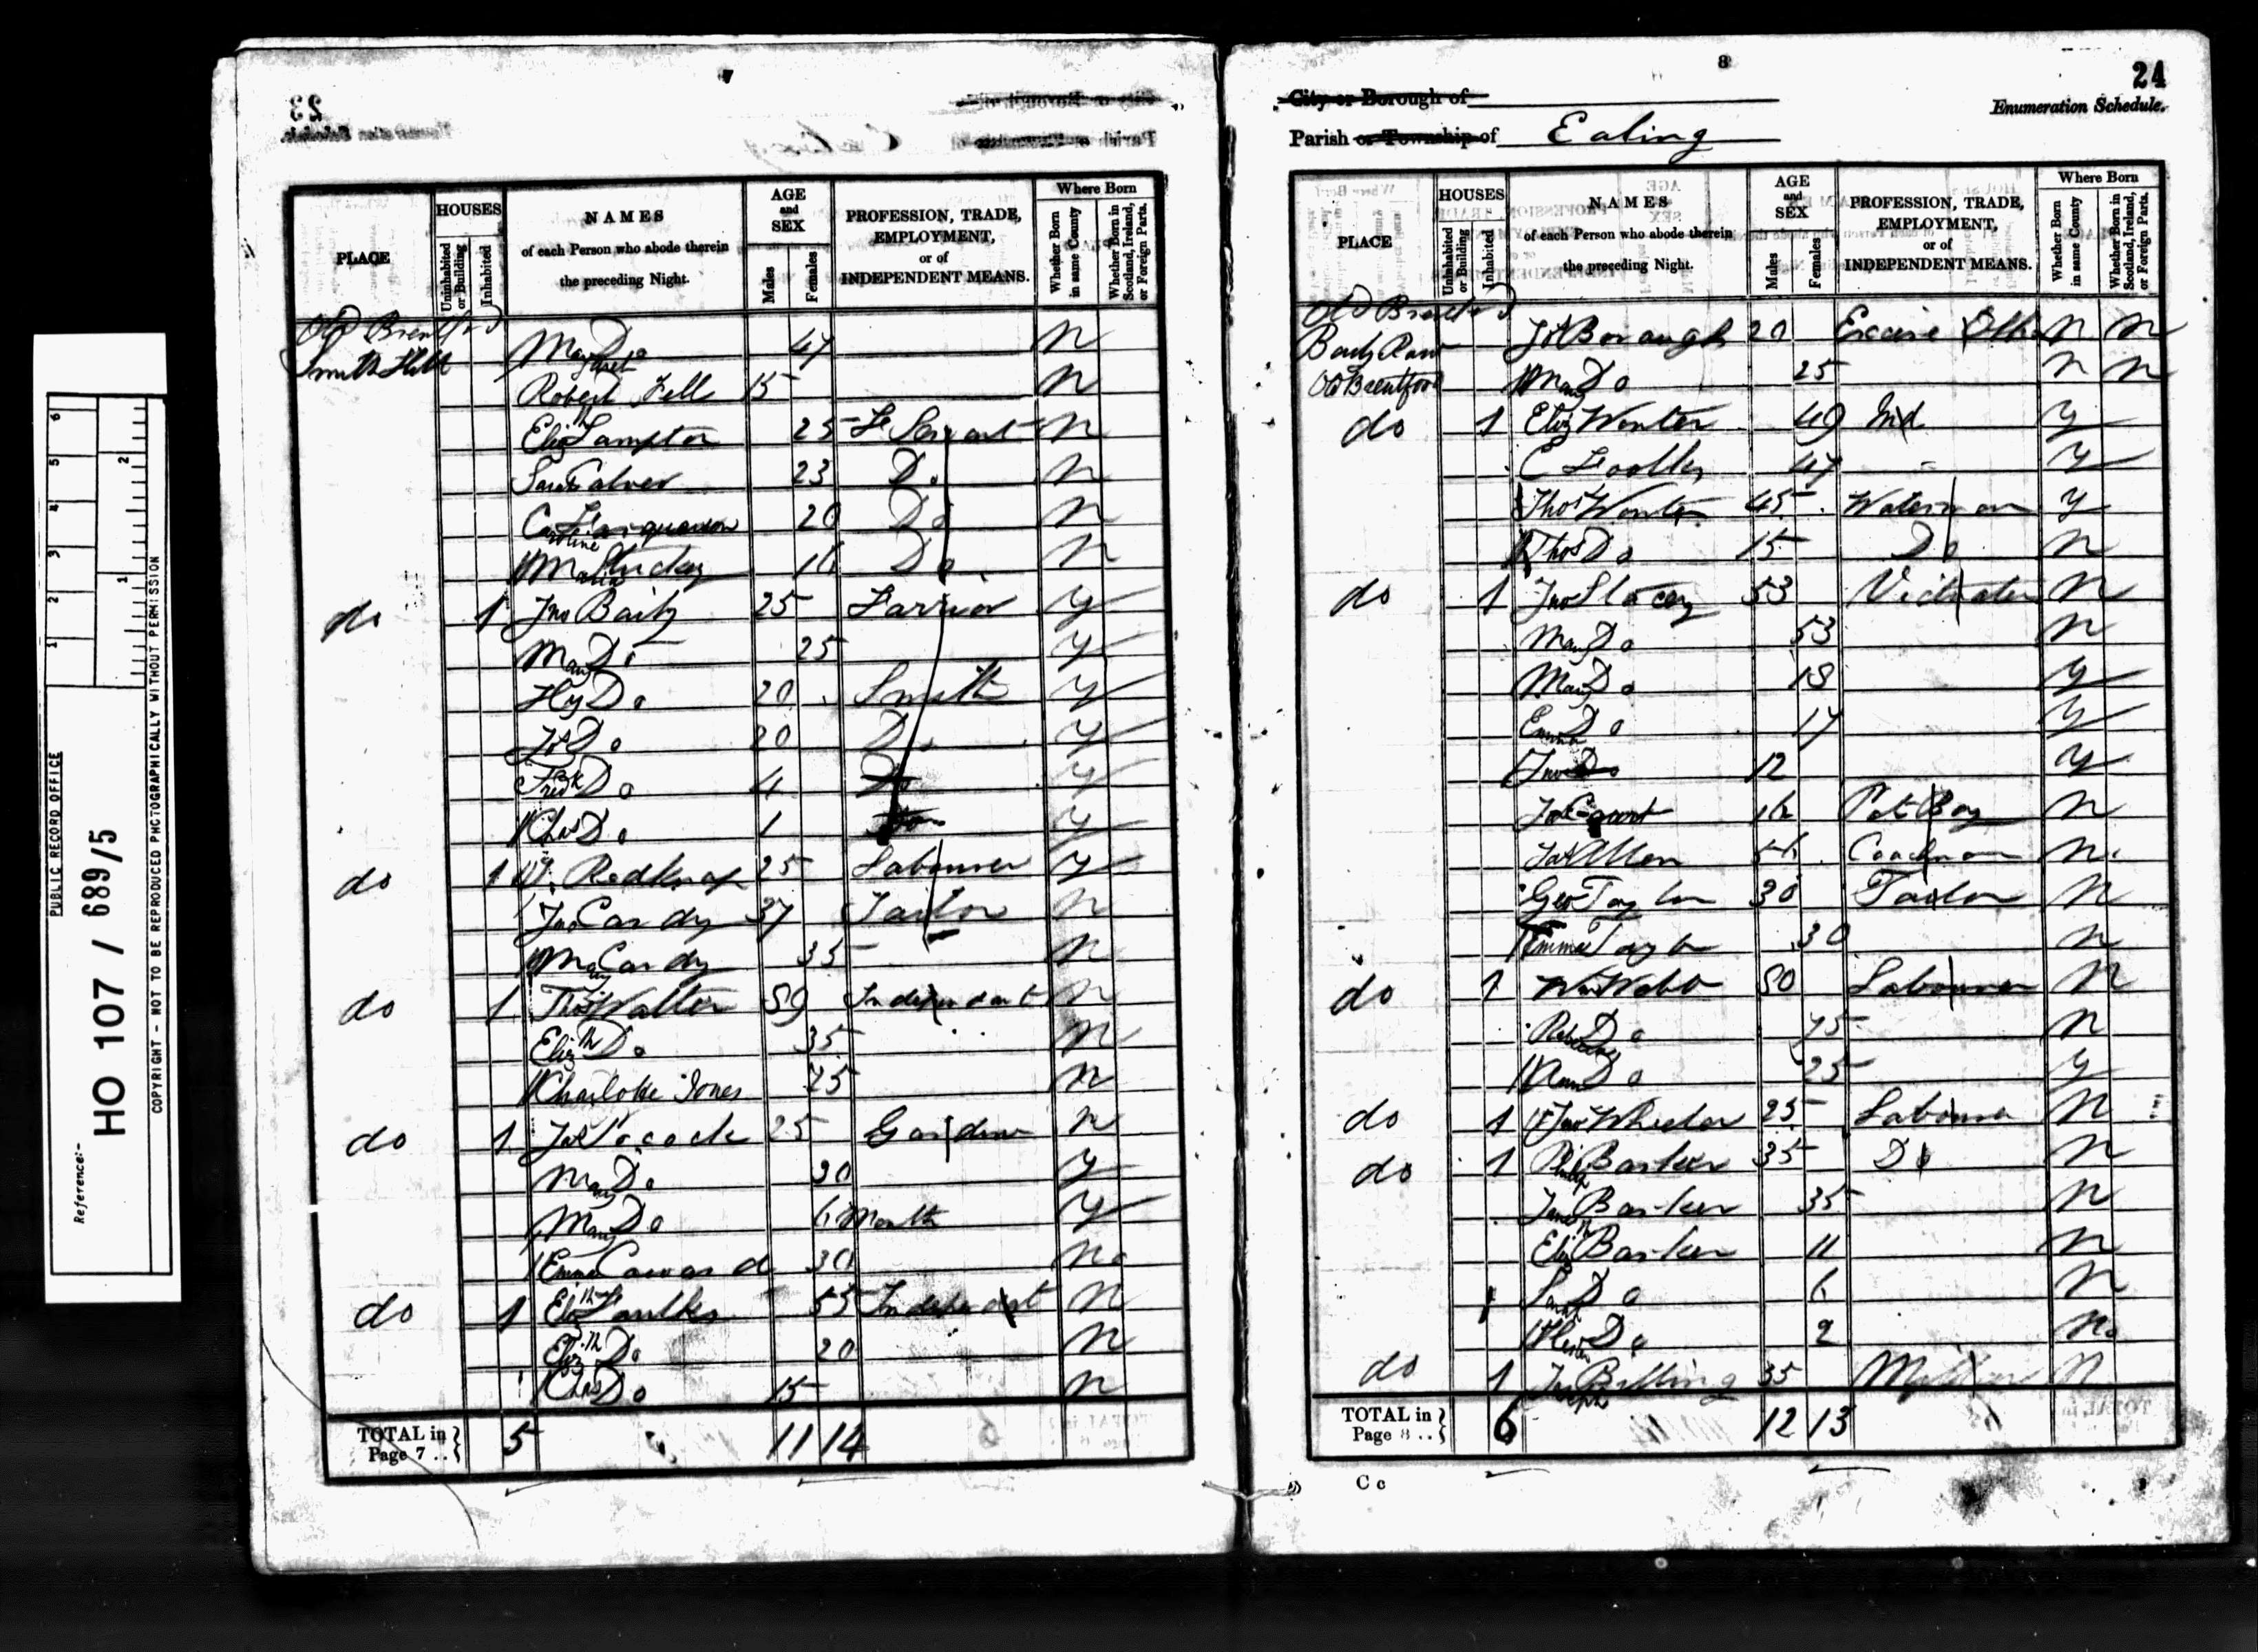 PUBLIC RECORD OFFICE
Reference:-
HO 107 / 689/5
COPYRIGHT - NOT TO BE REPRODUCED PHOTOGRAPHICALLY WITHOUT PERMISSION
1 2 3 4 5 6
1 2
7
23
PLACE
HOUSES
Uninhabited or Building
Inhabited
NAMES
of each Person who abode therein
the preceding Night.
AGE
and
SEX
Males
Females
PROFESSION, TRADE,
EMPLOYMENT,
or of
INDEPENDENT MEANS.
Where Born
Whether Born in same County
Whether Born in Scotland, Ireland, or Foreign Parts.
Old Brentford
Smith Hill
Margaret Do 47 N
Robert Fell 15 N
Elizth Lampton 25 F Servant N
Sarah Calver 23 Do N
Caroline 20 Do N
Maria Stuckey 16 Do N
do 1 Jno Baily 25 Farrier Y
Mary Do 25 Y
Hy Do 20 Smith Y
Js Do 20 Do Y
Fredk Do 4 Do Y
Chas Do 1 Do Y
do 1 W. Redknap 25 Labourer Y
Jno Cardy 37 Tailor N
Mary Cardy 35 N
do 1 Thos Walter 59 Independent N
Elizth Do 35 N
Charlotte Jones 75 N
do 1 Jas Pocock 25 Gardener N
Mary Do 30 Y
Mary Do 6 Month Y
Emma Caward 30 No
do 1 Elizth Faulkes 55 Independent N
Elizth Do 20 N
Chas Do 15 N
TOTAL in
Page 7 .. 5 11 14
8
24
City or Borough of
Enumeration Schedule.
Parish or Township of Ealing
PLACE
HOUSES
Uninhabited or Building
Inhabited
NAMES
of each Person who abode therein
the preceding Night.
AGE
and
SEX
Males
Females
PROFESSION, TRADE,
EMPLOYMENT,
or of
INDEPENDENT MEANS.
Where Born
Whether Born in same County
Whether Born in Scotland, Ireland, or Foreign Parts.
Old Brentford
Back Row Js Borough 20 Excise N N
Old Brentford Mary Do 25 N N
do 1 Eliz Winter 49 Ind Y
C 47 Y
Thos Winter 45 Waterman Y
Thos Do 15 Do N
do 1 Jno Stacey 53 Victualer N
Mary Do 53 N
Mary Do 18 Y
Emma Do 17 Y
Jno Do 12 Y
Jas 16 Pot Boy N
Jas Allen 56 Coachman N
Geo Taylor 30 Tailor N
Emma Taylor 30 N
do 1 Wm Webb 80 Labourer N
Rebecca Do 75 N
Ann Do 25 Y
do 1 Jno Wheeler 25 Labourer N
do 1 Philip Barker 35 Do N
Jane Barker 35 N
Elizth Barker 11 N
Sarah Do 6 N
Hester Do 2 No
do 1 Joseph Billing 35 N
TOTAL in
Page 8 .. 6 12 13
C c